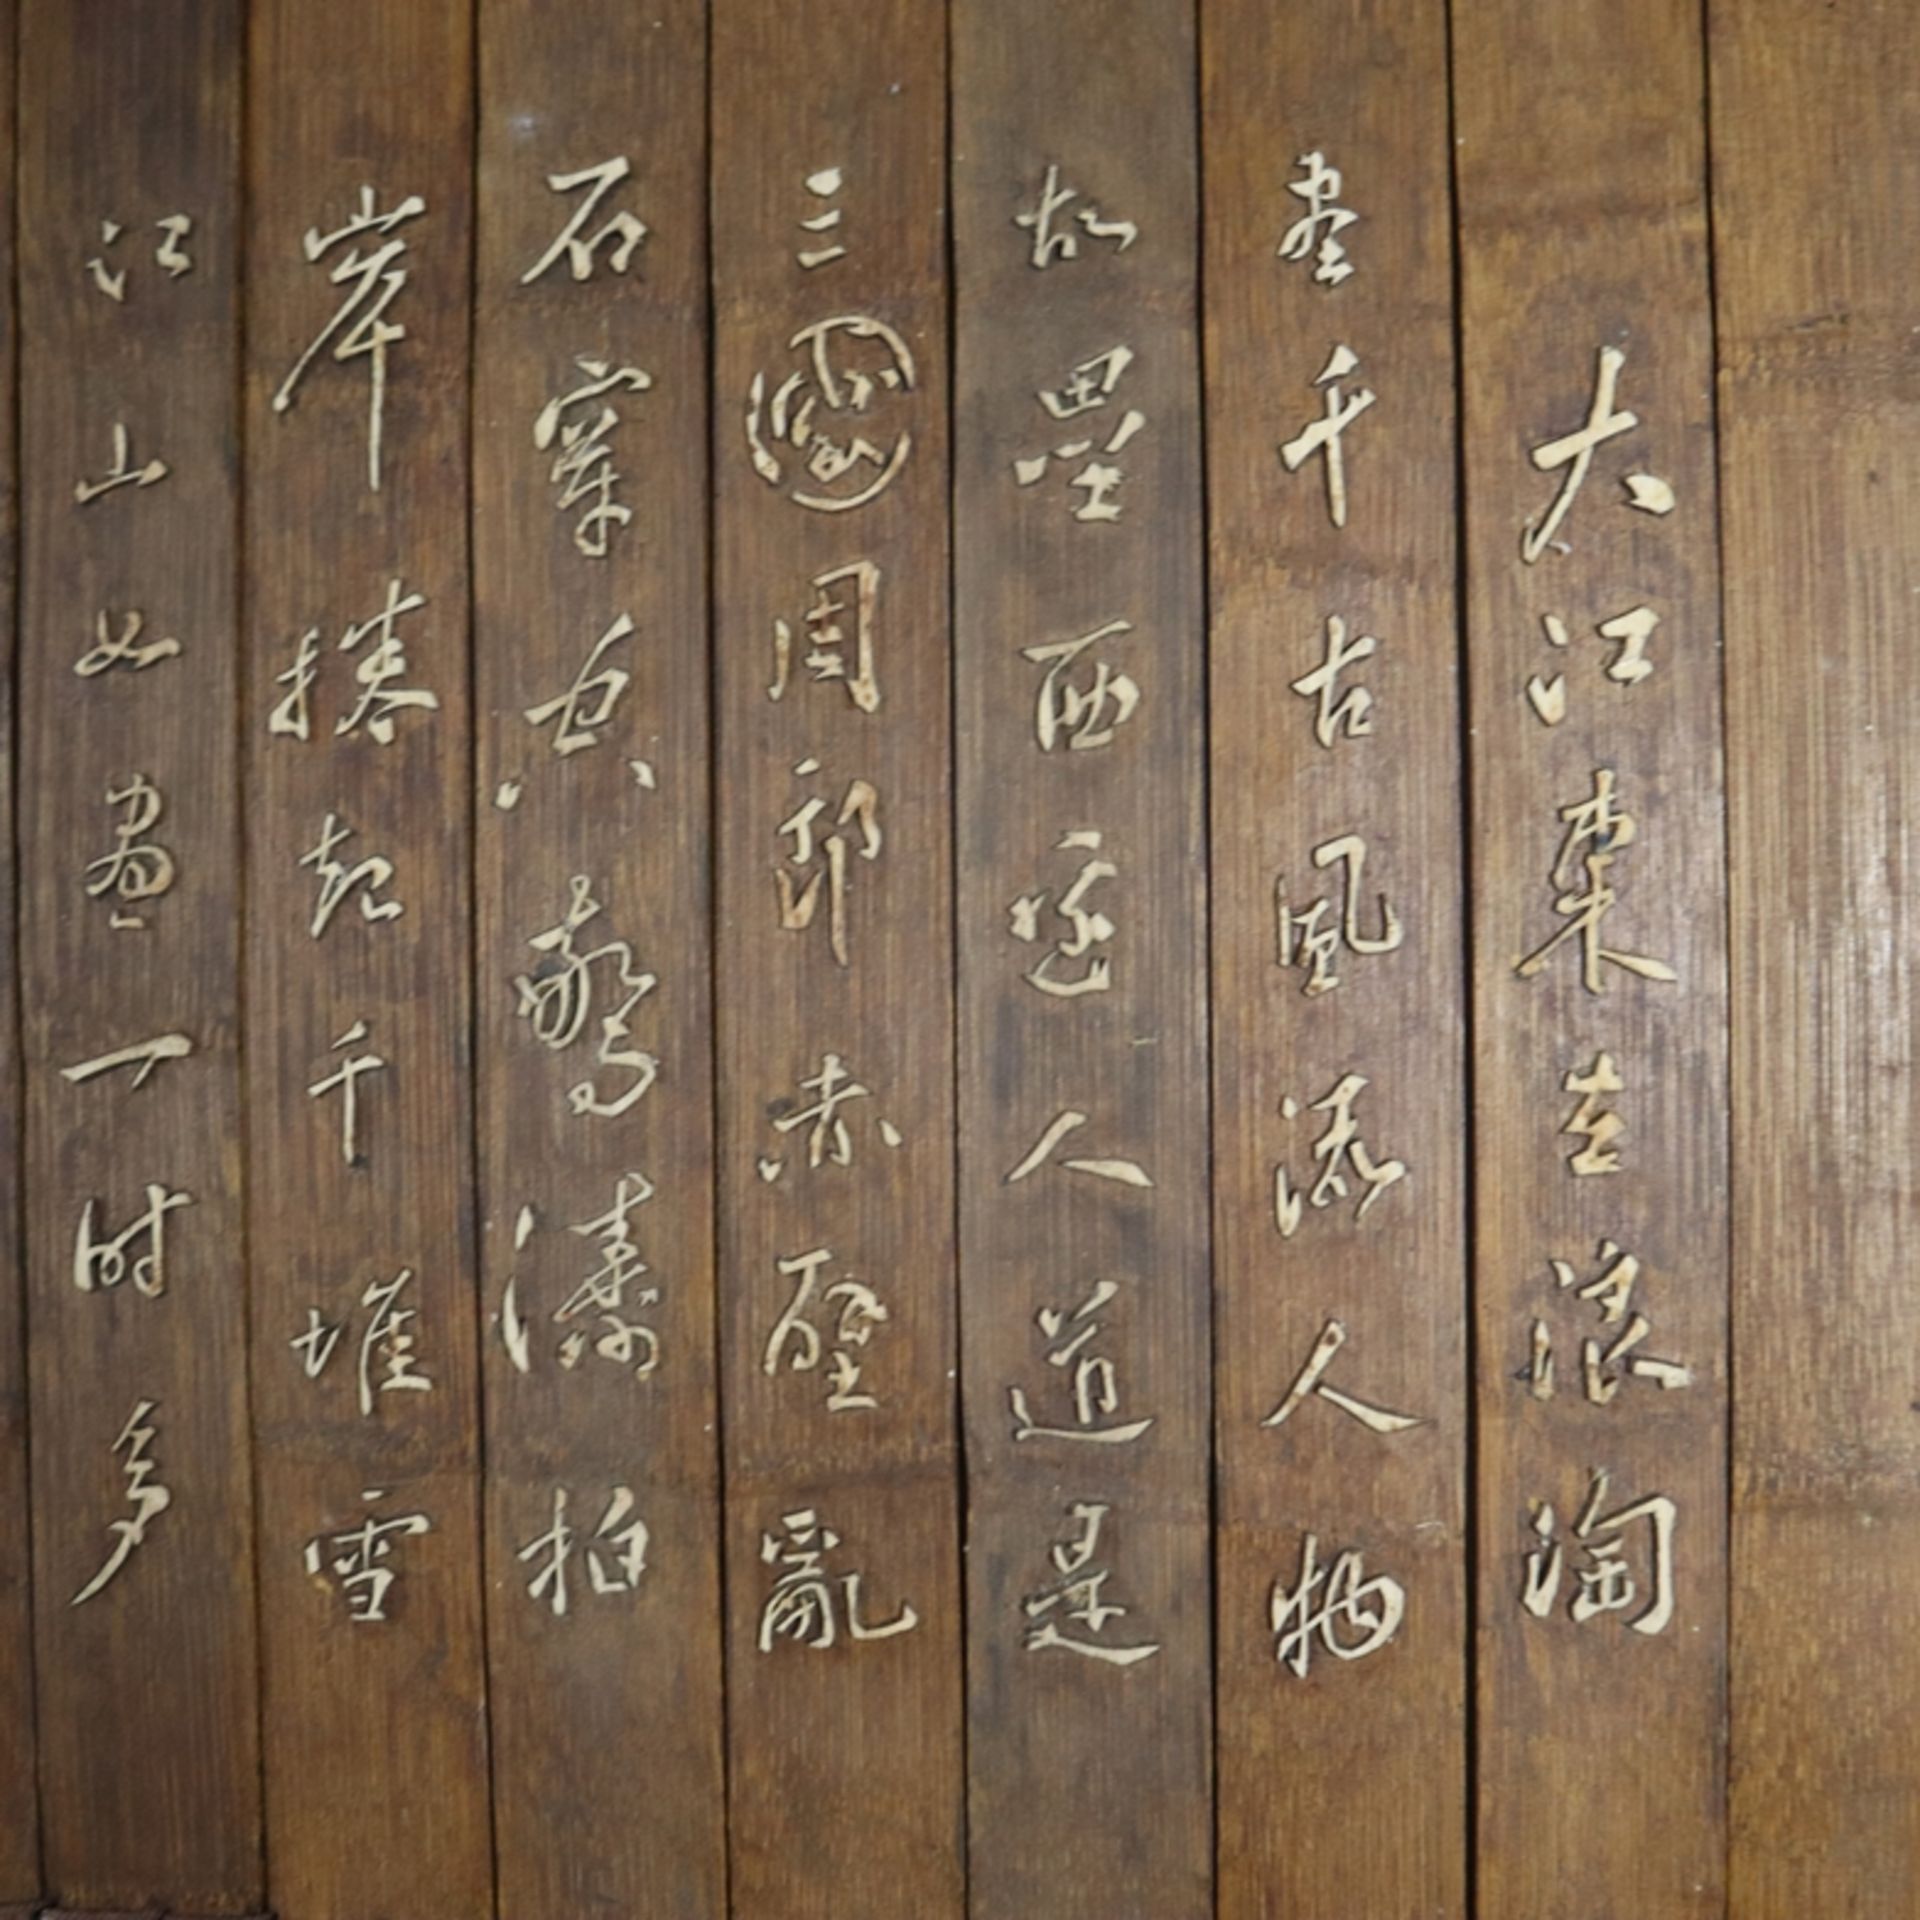 大江東去浪淘
盡千古風流人物
故壘西邊人道是
三國周郎赤壁亂
石穿空驚濤拍
岸捲起千堆雪
江山如畫一时多